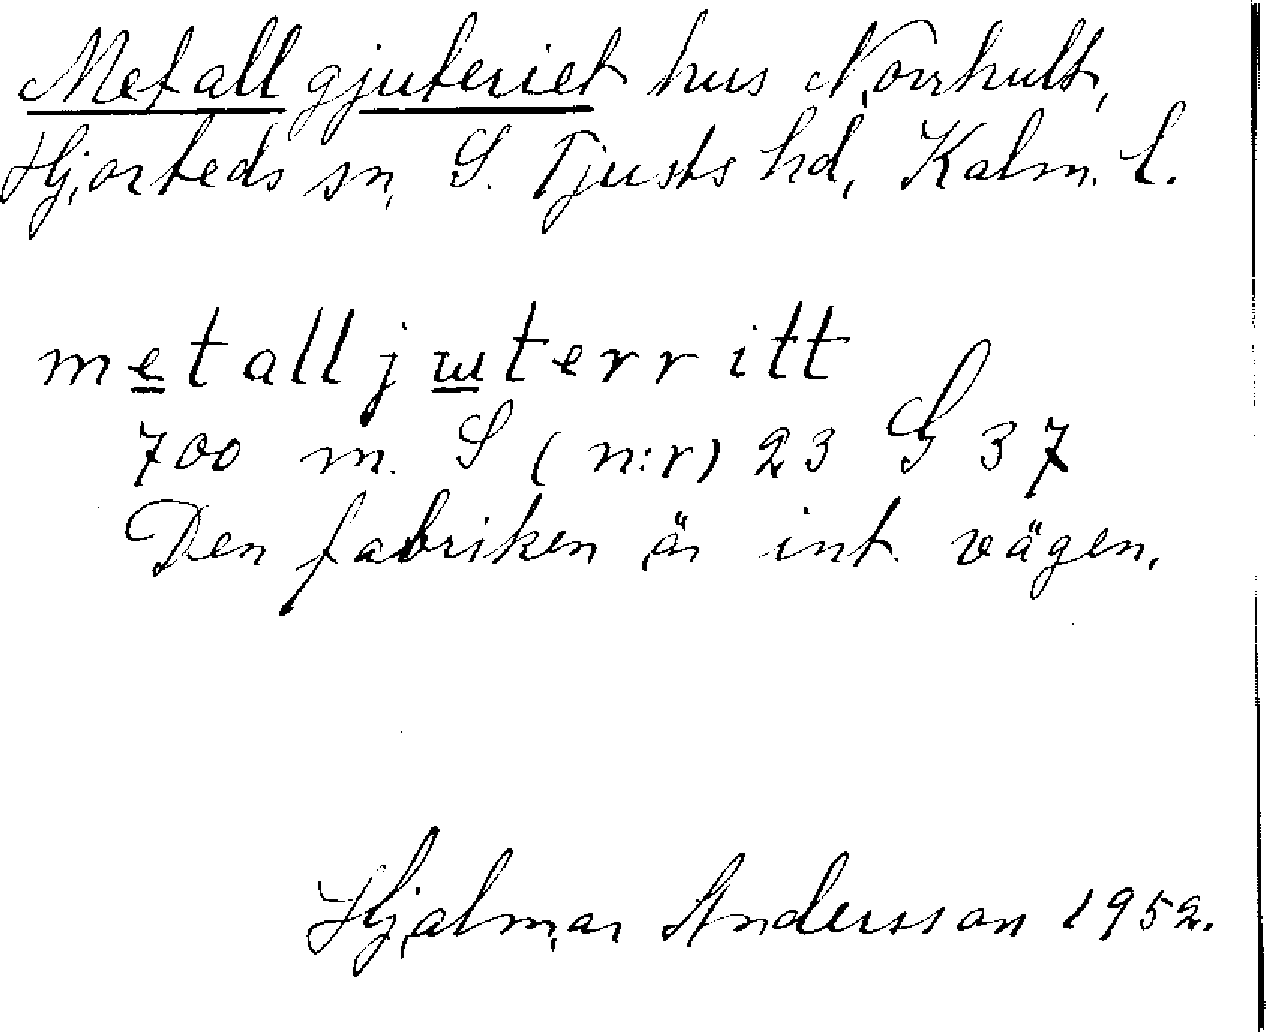 Metallgjuteriet hus Norrhult,
Hjorteds sn, S. Tjusts hd, Kalm. l.
metalljuterritt
700 m. S (n:r) 23 G 37
Den fabriken är int vägen.
Hjalmar Andersson 1952.